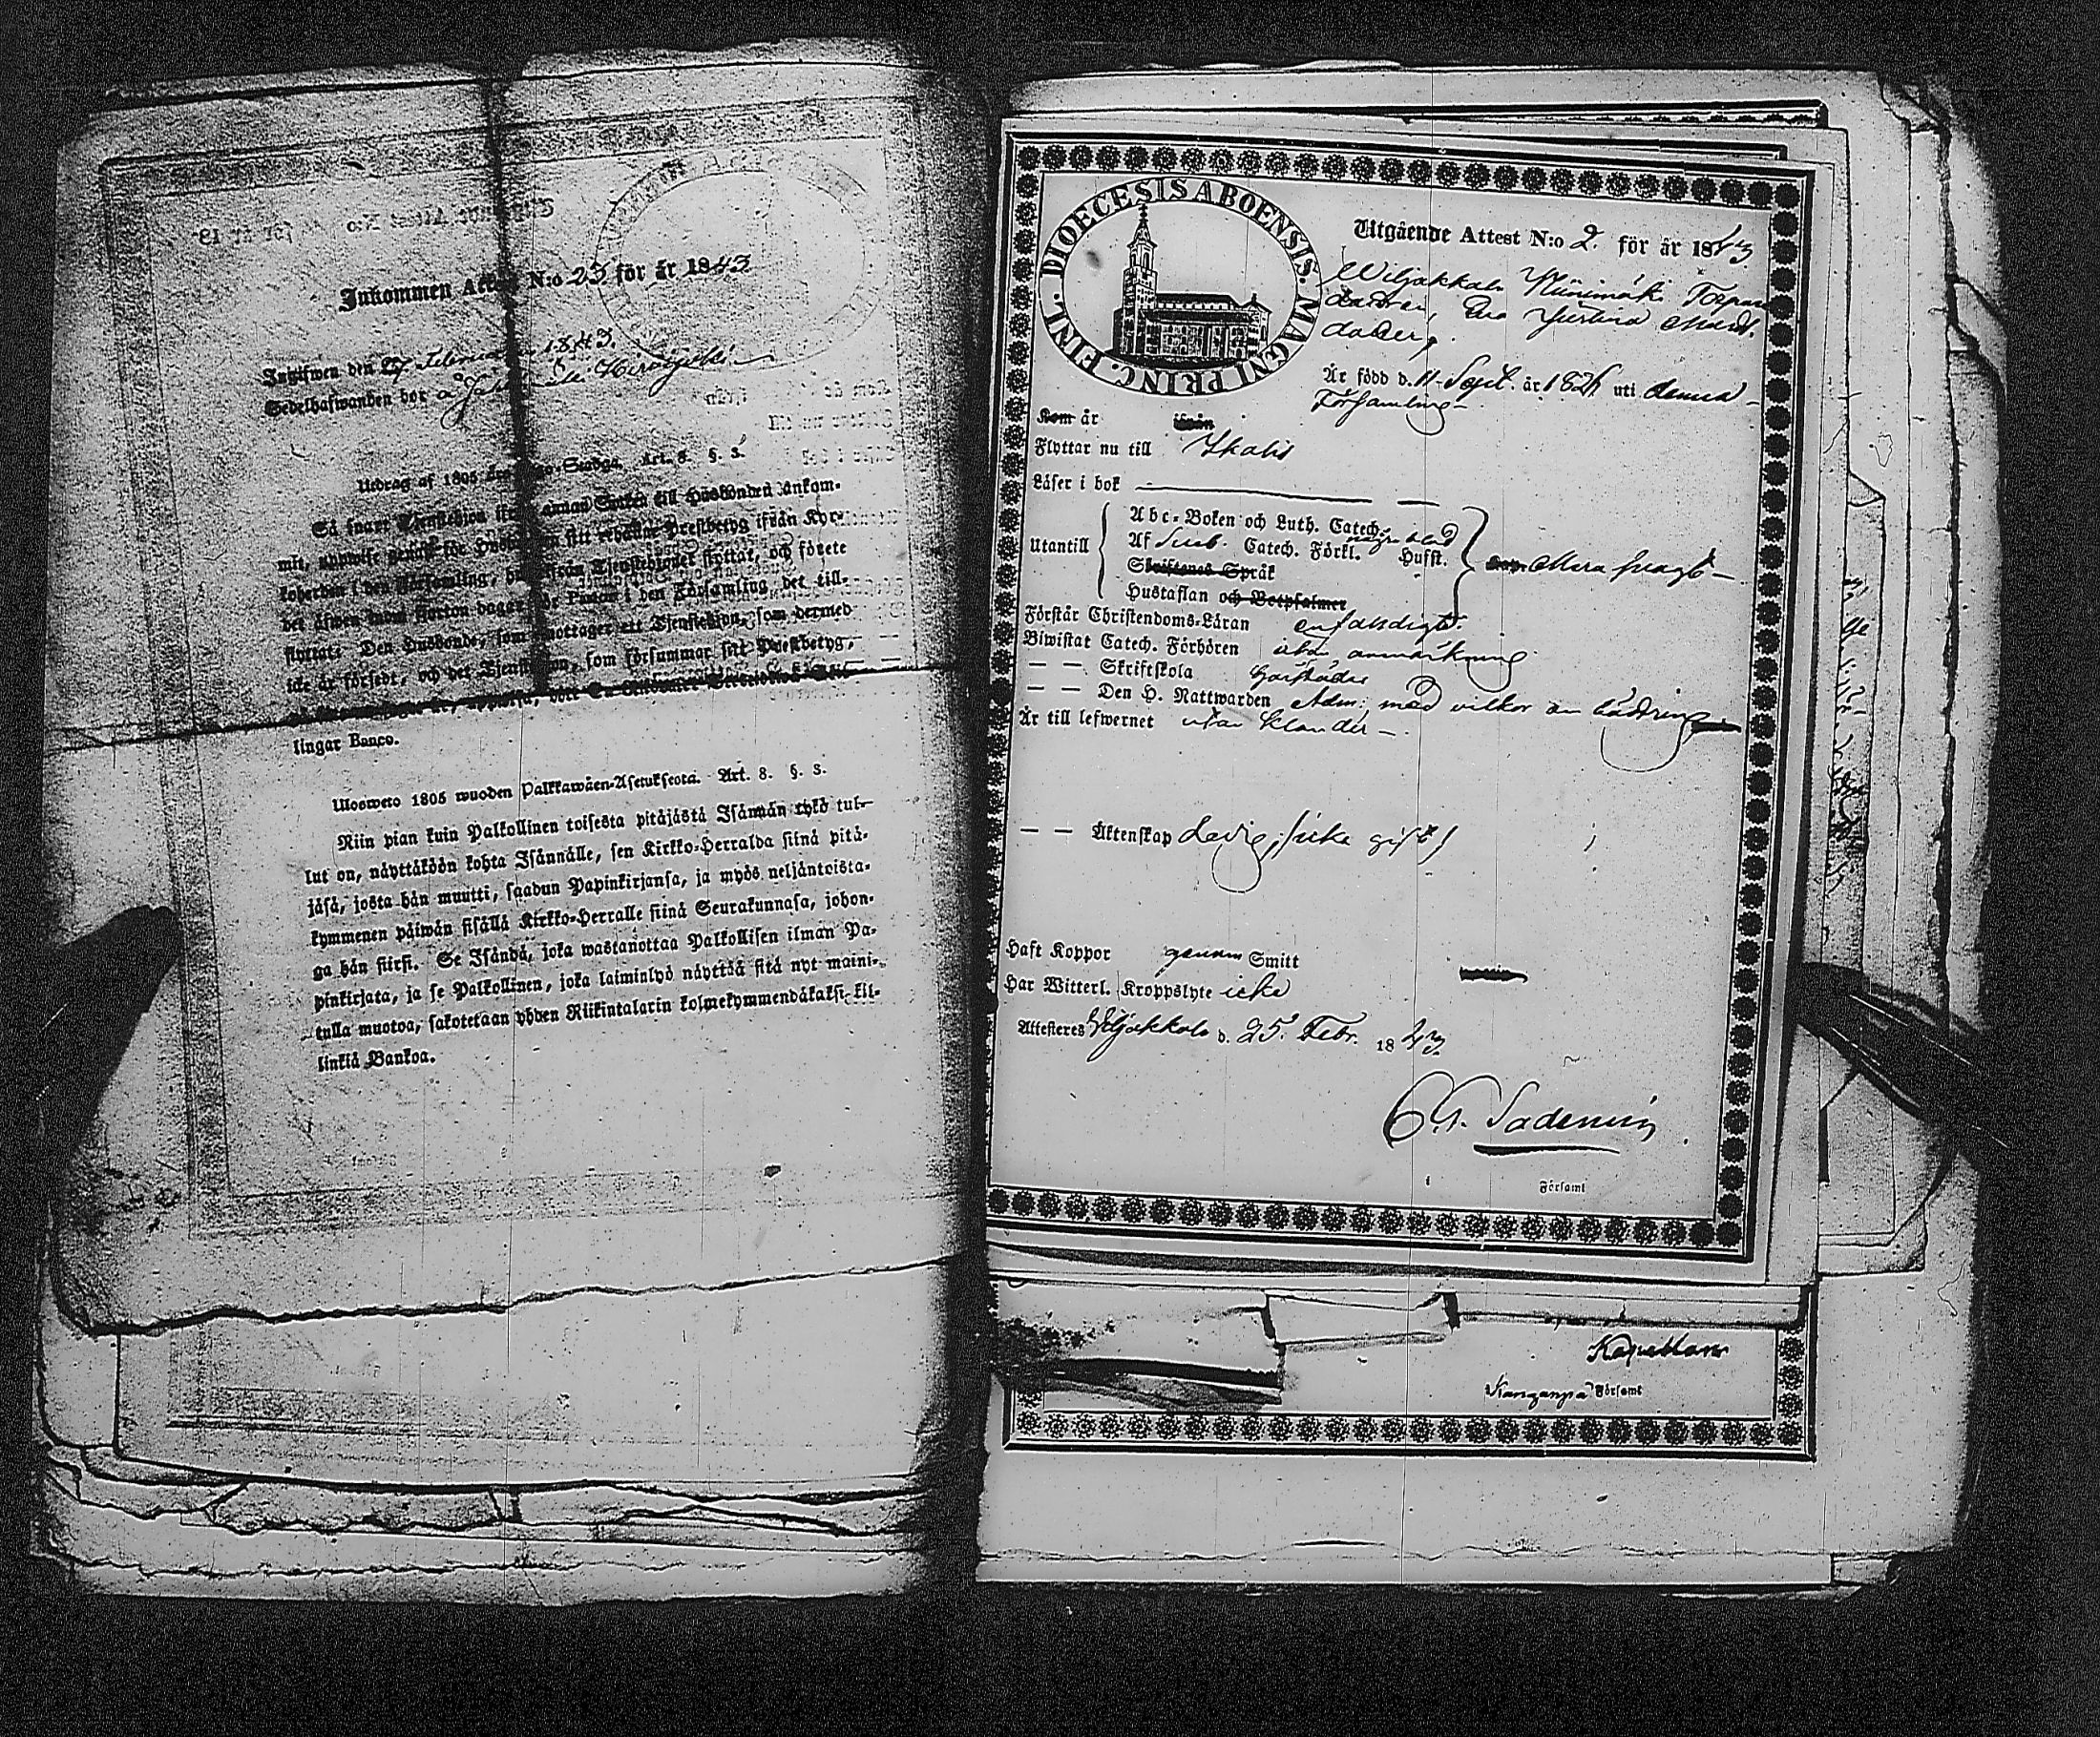 Inkommen Attest N:o 23 för år 1843
Ingifwen den 27 Februari 1843.
Sedelhafwanden bor å Hirvijoki
Utdrag af 1805 års Lego-Stadga. Art. 8. §. 3.
Så snart Tjenstehjon ifrån annan Socken till Husbonden ankom-
mit, uppwise genast för Husbonden sitt erhållne Prestbetyg ifrån Kyr-
koherden i den Församling, hwarifrån Tjenstehjonet flyttat, och förete
det äfwen inom fjorton dagar för Pastor i den Församling det till-
flyttat. Den Husbonde, som emottager ett Tjenstehjon, som dermed
icke är försedt, och det Tjenstehjon, som försummar sitt Prestbetyg,
lingar Banco.
Uloswedo 1805 wuoden Palkkawäen-Asetuksesta. Art. 8. §. 3.
Niin pian kuin Palkollinen toisesta pitäjästä Isännän tykö tul-
lut on, näyttäköön kohta Isännälle, sen Kirkko-Herralda siinä pitä-
jäsä, josta hän muutti, saadun Papinkirjansa, ja myös neljäntoista-
kymmenen päiwän sisällä Kirkko-Herralle siinä Seurakunnasa, johon-
ga hän siirsi. Se Isändä, joka wastanottaa Palkollisen ilman Pa-
pinkirjata, ja se Palkollinen, joka laiminlyö näyttää sitä nyt maini-
tulla muotoa, sakotetaan yhden Riikintalarin kolmekymmendäkaksi kil-
linkiä Bankoa.
DIOECESIS ABOENSIS. MAGNI PRINC. FINL.
Utgående Attest N:o 2. för år 1843
Wiljakkala Niinimäki Torpare
dottren, Eva Justina Matts
dotter,
Är född d. 11 Sept. år 1826 uti denna
Församling
Kom år ifrån
Flyttar nu till Ikalis
Läser i bok
Utantill
Abc-Boken och Luth. Catech.
Af Sveb. Catech. Förkl. några blad Hufst.
Skriftenes Språk
Hustaflan och Botpsalmer
Mera svagt
Förstår Christendoms-Läran enfaldigt
Biwistat Catech. Förhören utan anmärkning
— — Skriftskola
— — Den H. Nattwarden Adm: med vilkor om bättring
Är till lefwernet utan klander
— — Äktenskap Ledig, icke gift
Haft Koppor genom Smitt
Har Witterl. Kroppslyte icke
Attesteres Wiljakkala d. 25 Febr. 1843
Församl
Kapellan
Kanganpä Församl